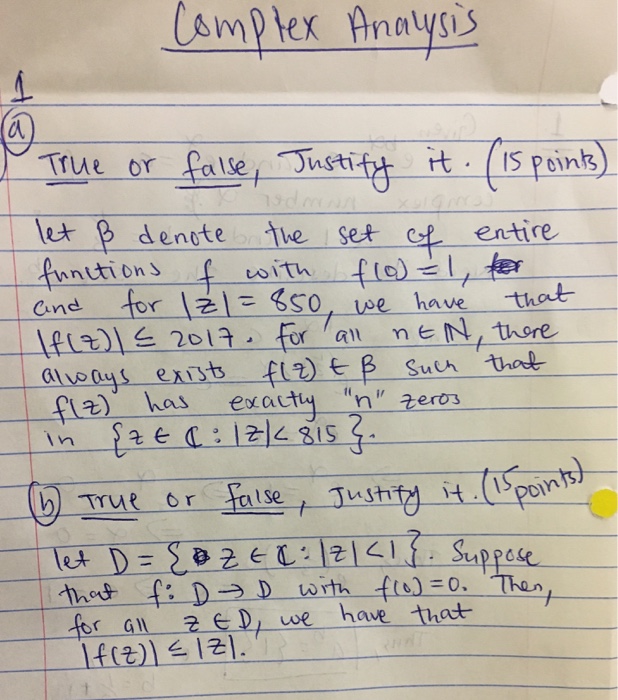 Complex Analysis
1
(a)
True or false, Justify it. (15 points)
let β denote the set of entire
functions f with f(0) = 1,
and for |z| = 850, we have that
|f(z)| ≤ 2017. For all n ∈ ℕ, there
always exists f(z) ∈ β such that
f(z) has exactly "n" zeros
in {z ∈ ℂ : |z| < 815}.
(b) True or false, Justify it. (15 points)
let D = { z ∈ ℂ : |z| < 1}. Suppose
that f: D → D with f(0) = 0. Then,
for all z ∈ D, we have that
|f(z)| ≤ |z|.